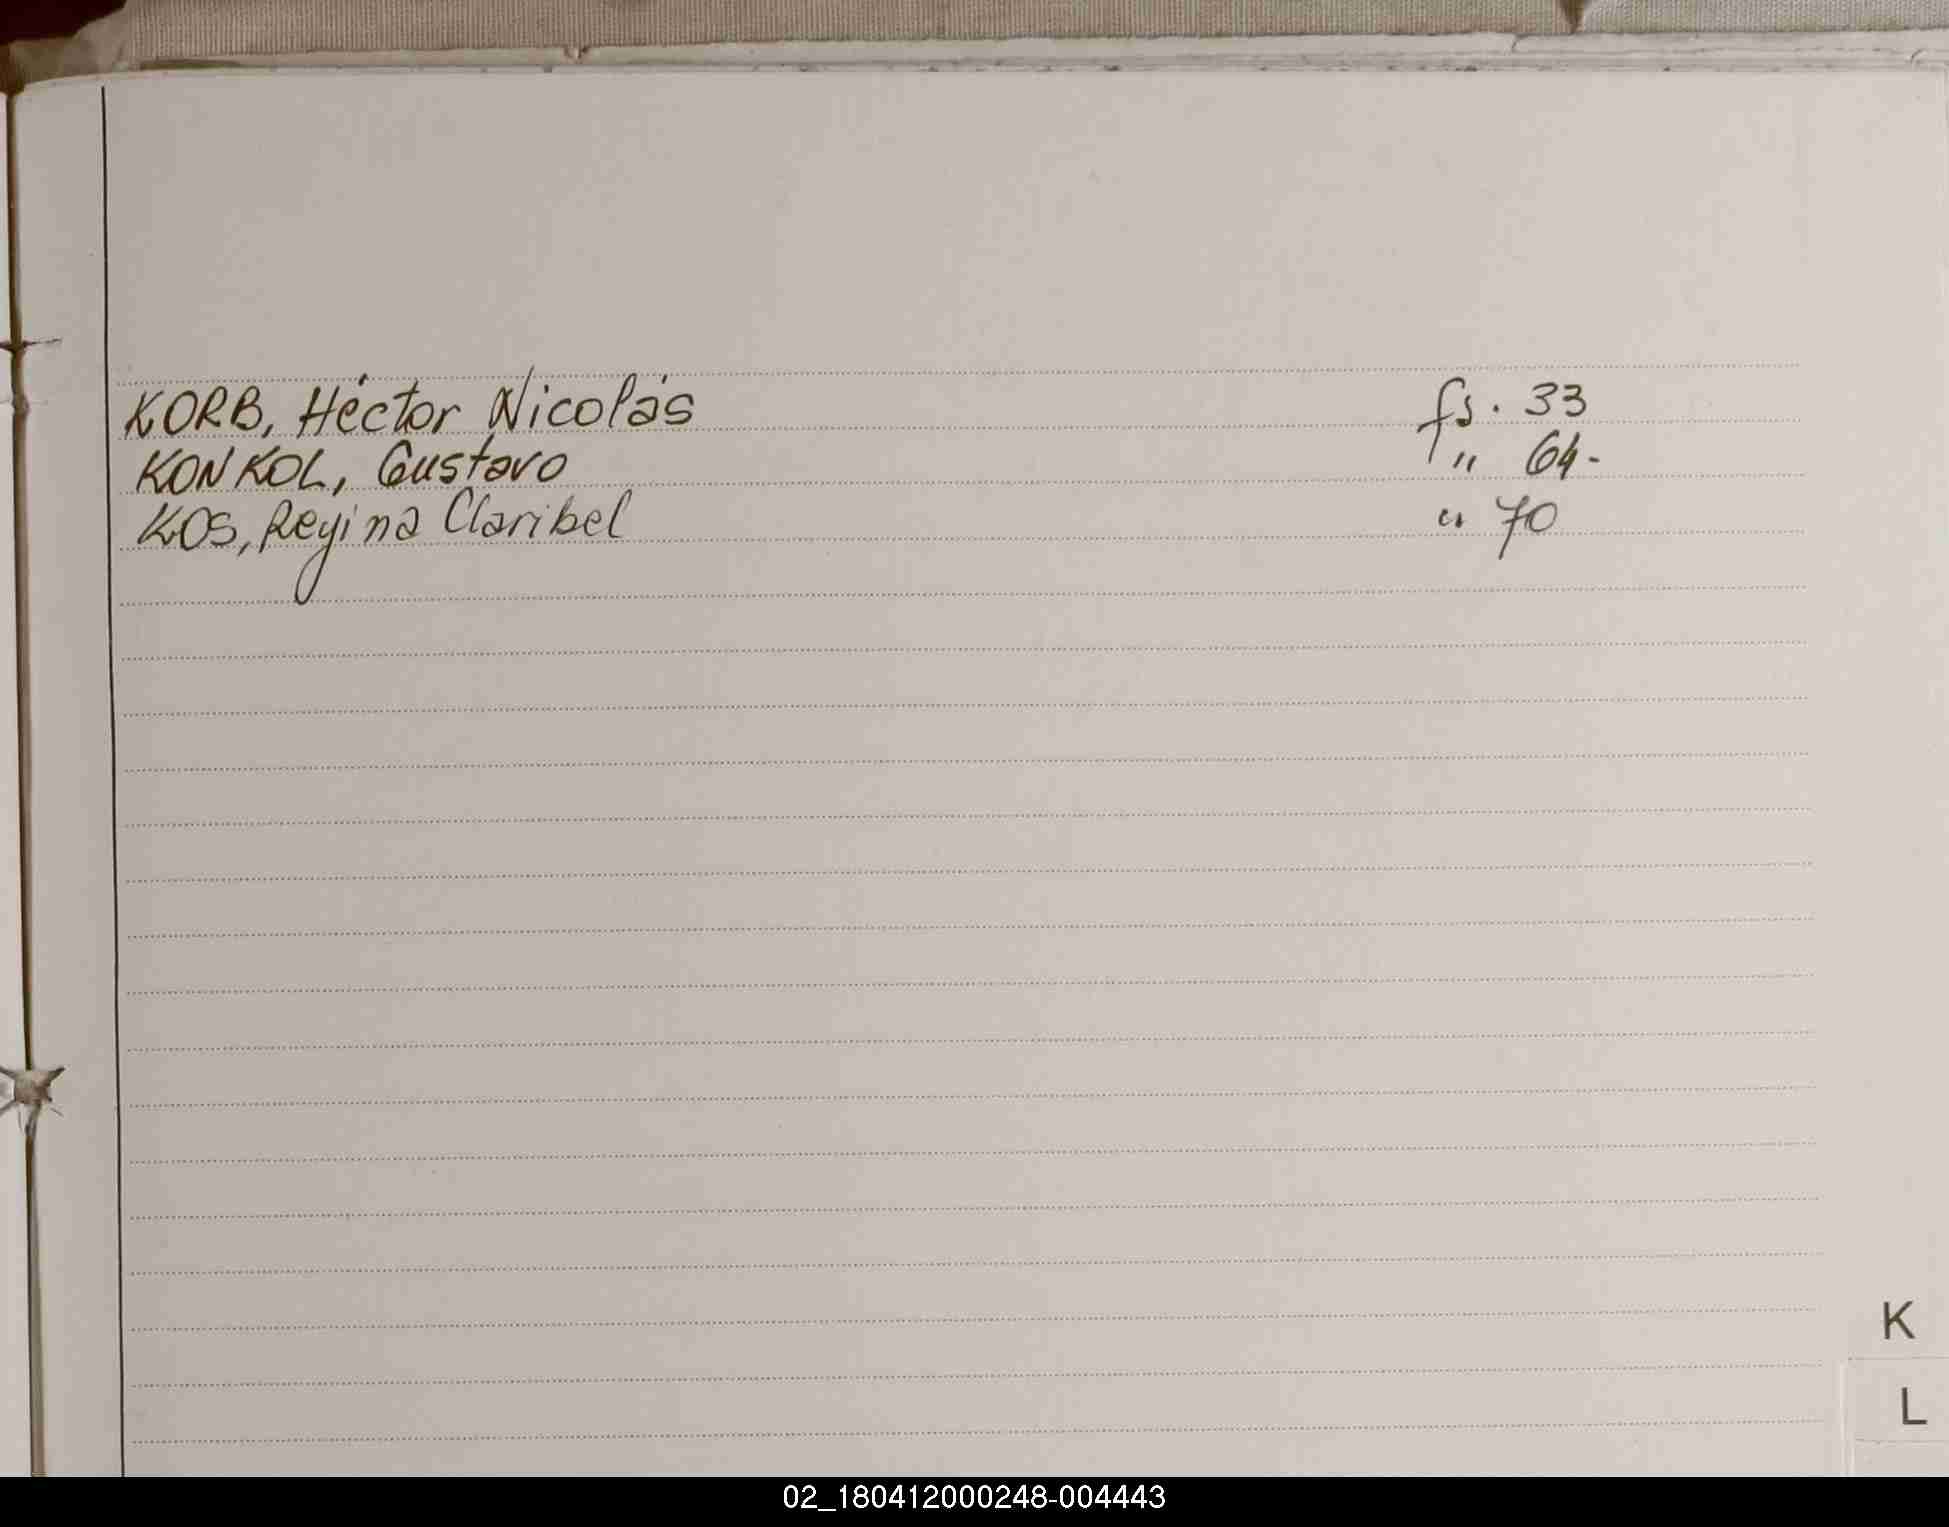 KORB, Héctor Nicolás fs. 33
KONKOL, Gustavo " 64-
KOS, Regina Claribel " 70
K
L
02_180412000248-004443